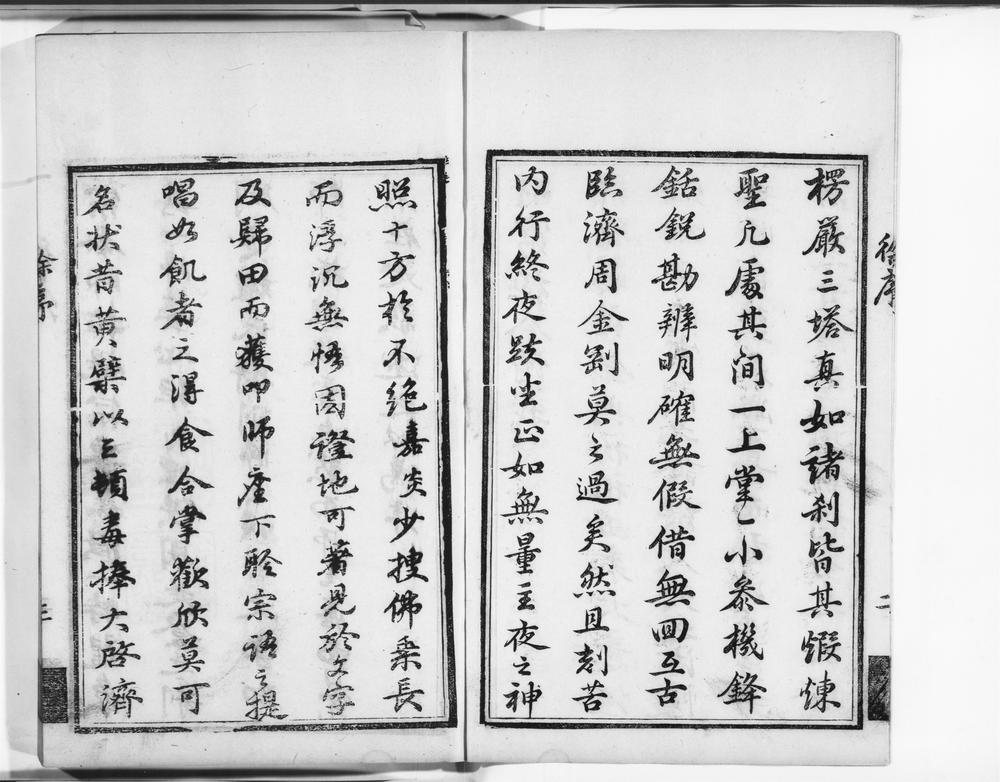 徐序
二
楞嚴三塔真如諸刹皆其煅煉
聖凡處其間一上堂一小參機鋒
銛銳勘辨明確無假借無回互古
臨濟周金剛莫之過矣然且刻苦
内行終夜趺坐正如無量主夜之神
照十方於不絕嘉炎少搜佛乘長
而浮沉無悟因證地可著見於文字
及歸田而獲叩師座下聆宗語之提
唱如飢者之得食合掌歡欣莫可
名状昔黄檗以三頓毒捧大啓濟
徐序
三